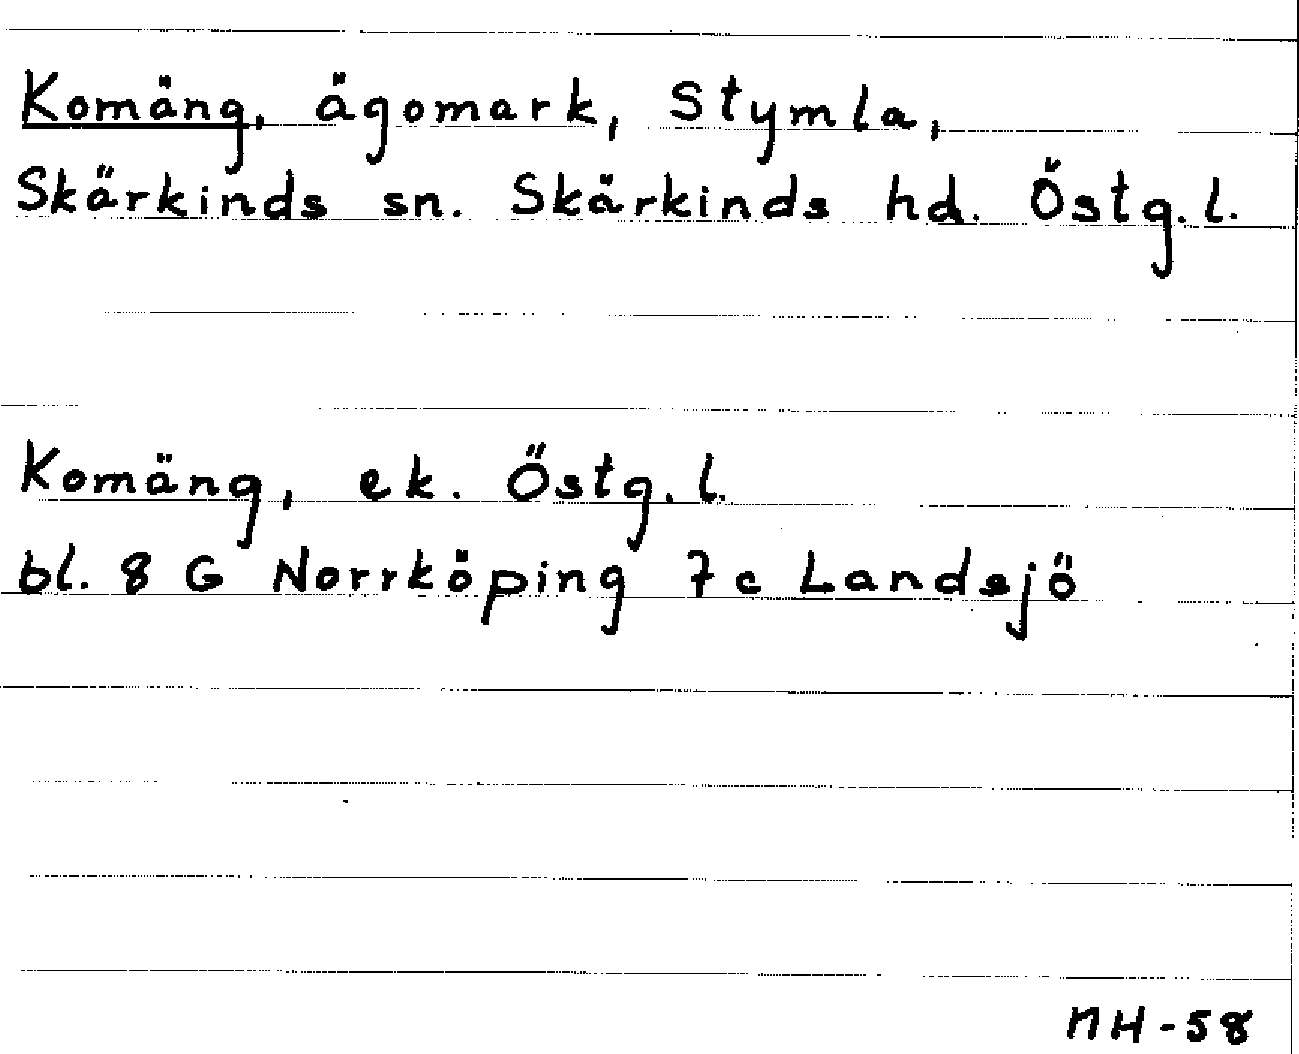 Komäng, ägomark, Stymla,
Skärkinds sn. Skärkinds hd. Östg. l.
Komäng, ek. Östg. l.
bl. 8 G Norrköping 7c Landsjö
NH-58